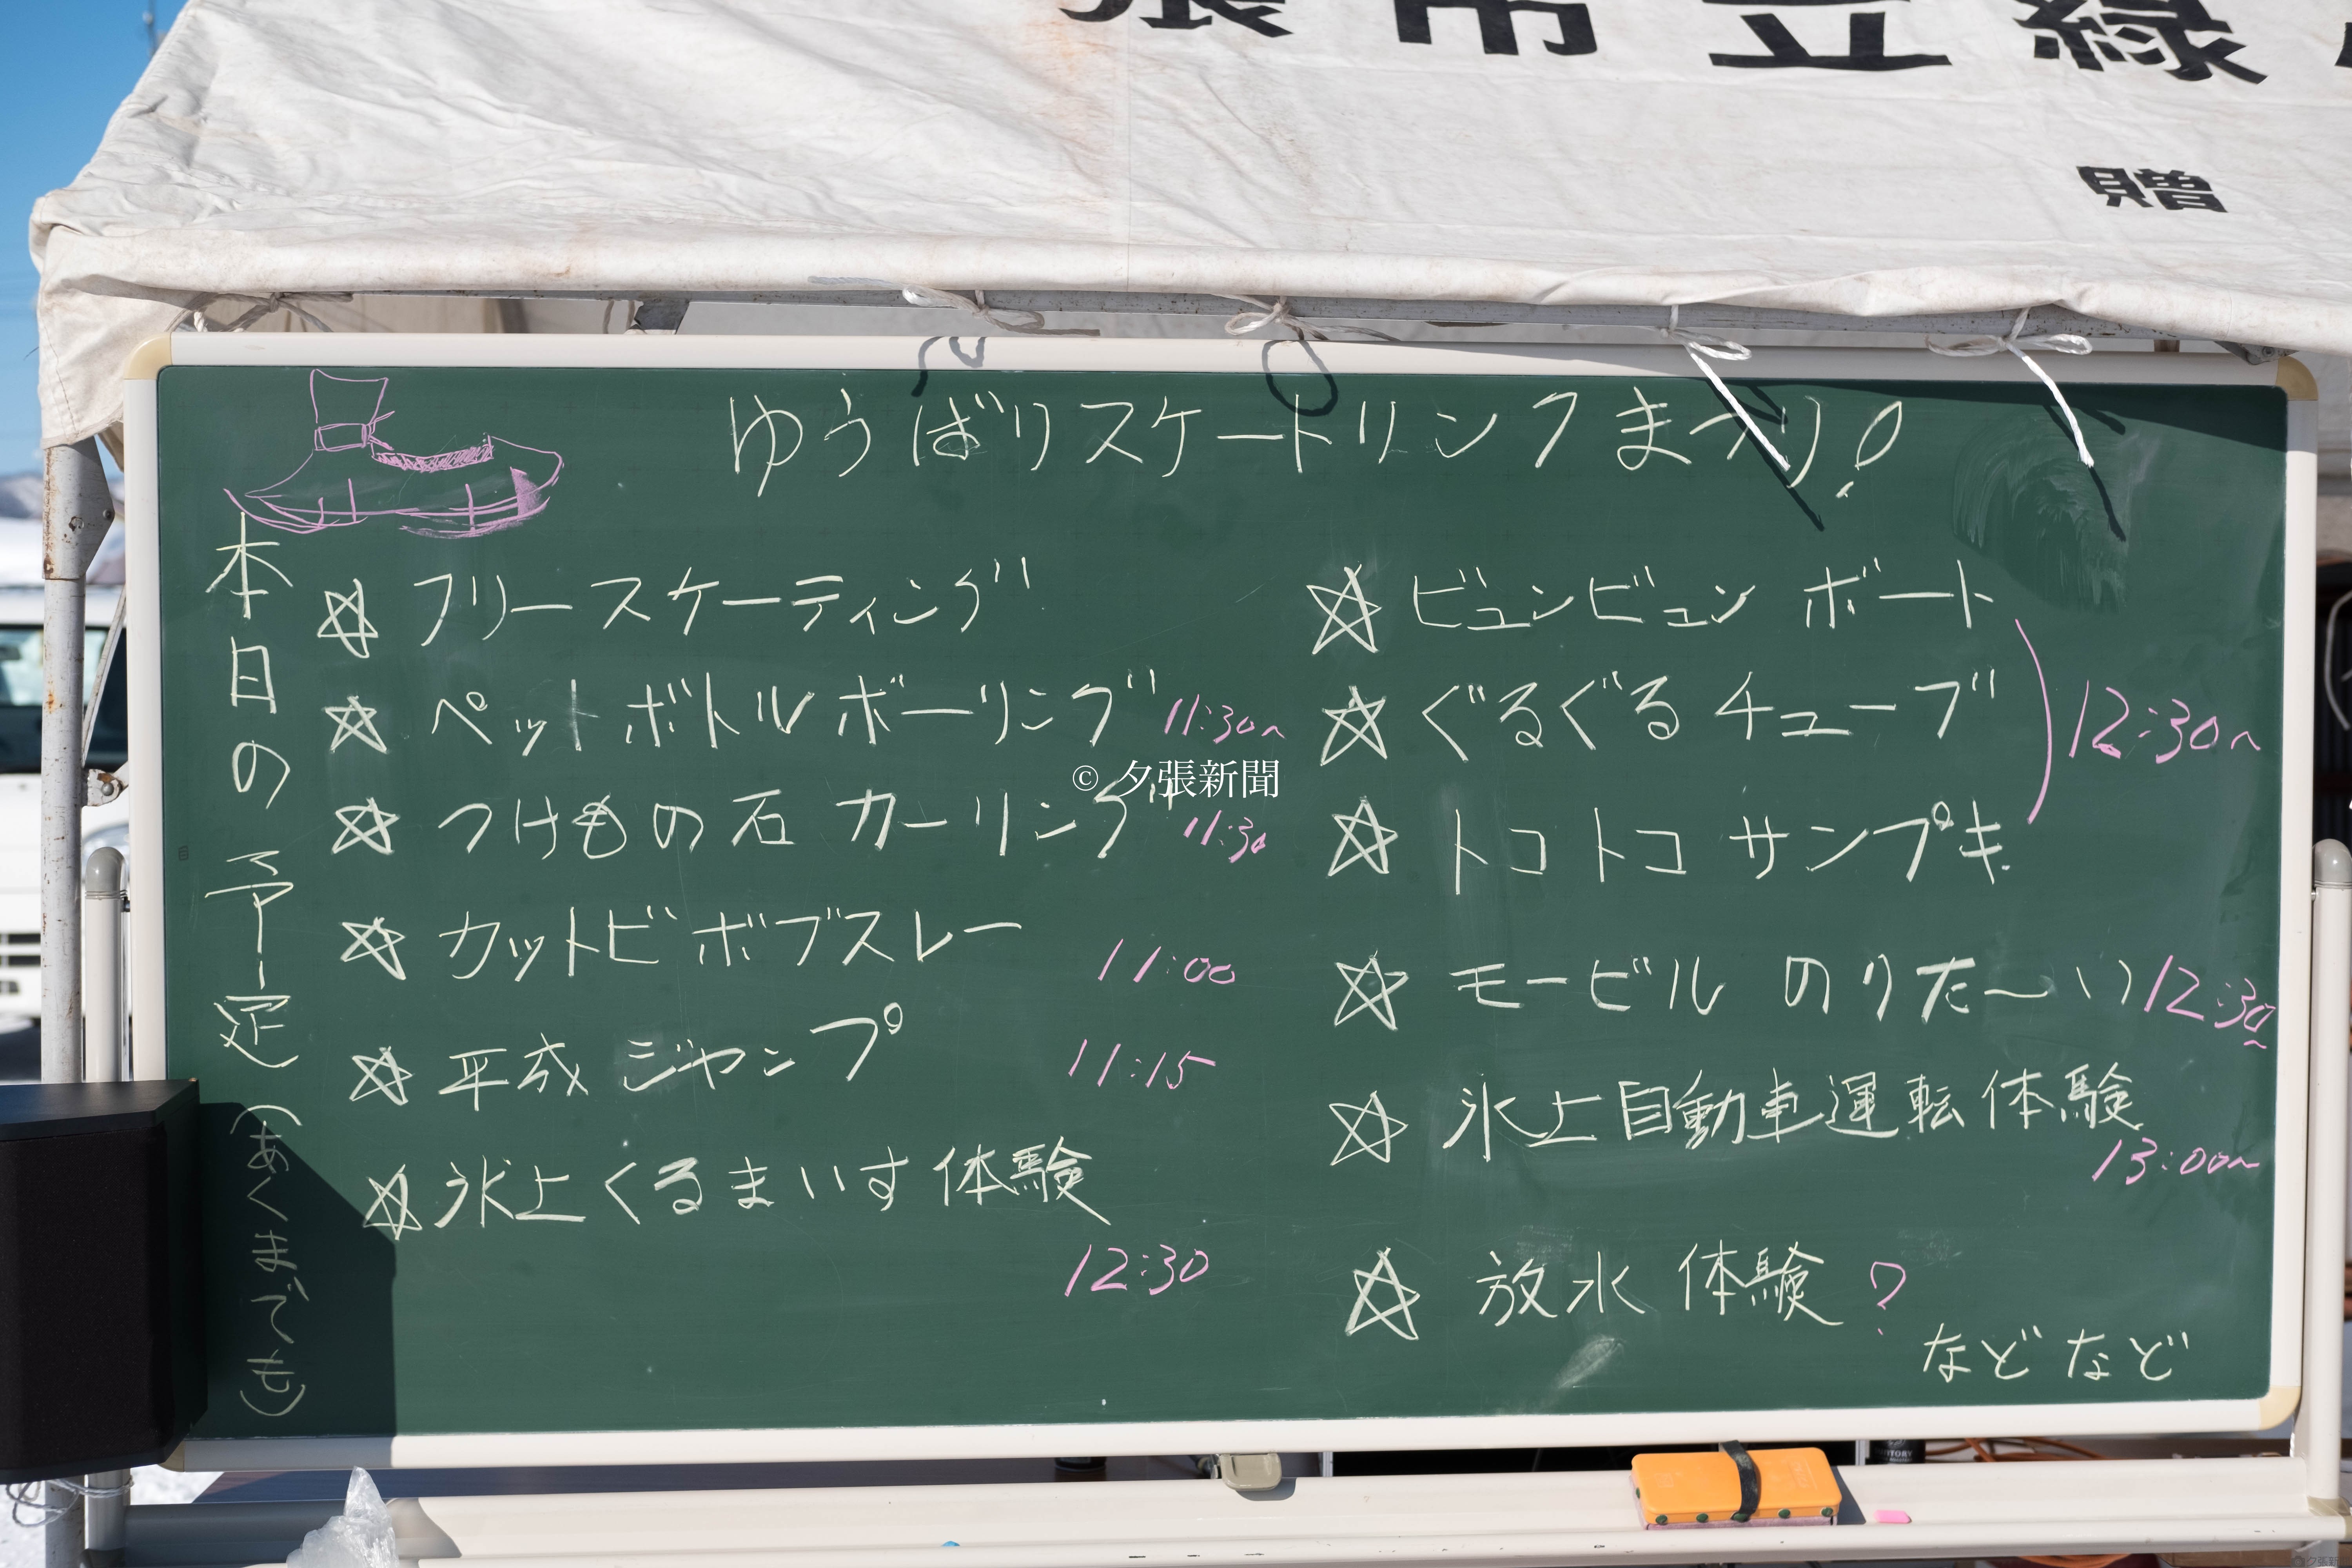 張市立緑
贈
ゆうばりスケートリンクまつり!
本日の予定(あくまでも)
☆ フリースケーティング
☆ ペットボトルボーリング 11:30~
☆ つけもの石カーリング 11:30
☆ カットビボブスレー 11:00
☆ 平成ジャンプ 11:15
☆ 氷上くるまいす体験
12:30
☆ ビュンビュンボート
☆ ぐるぐるチューブ
12:30~
☆ トコトコサンプキ
☆ モービルのりた~い 12:30~
☆ 氷上自動車運転体験
13:00~
☆ 放水体験?
などなど
© 夕張新聞